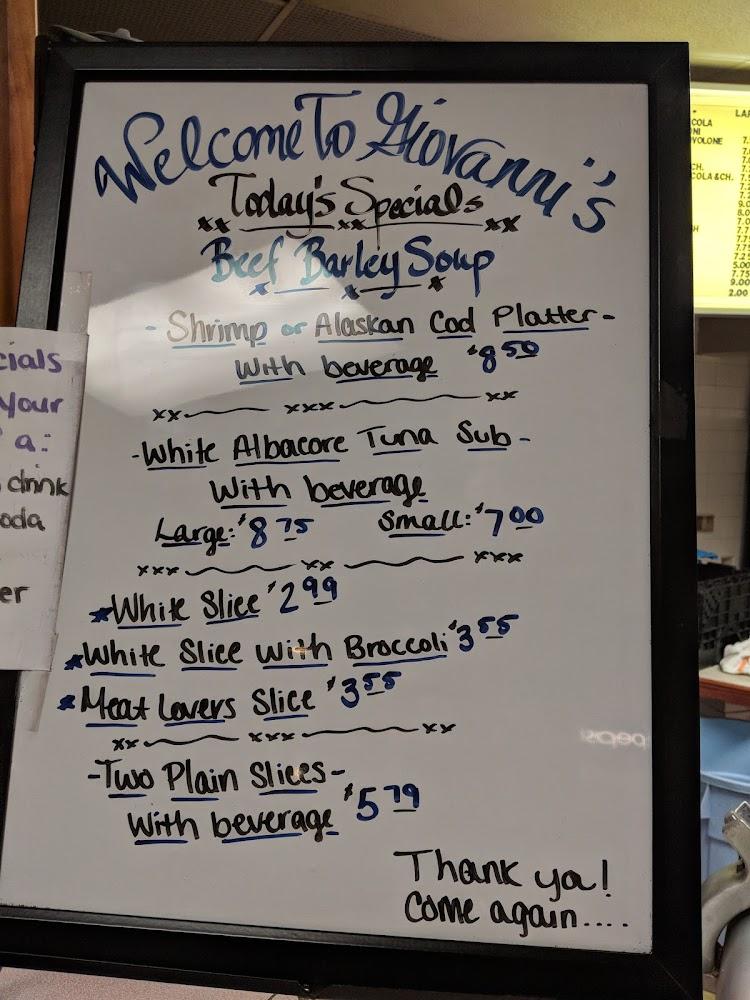 Welcome To Giovanni's
Today's Specials
xx xx xx
Beef Barley Soup
x x x
- Shrimp or Alaskan Cod Platter -
With beverage $8 50
xx xxx xx
-White Albacore Tuna Sub-
With beverage
Large: $8 75 Small: $7 00
xxx xx xxx
*White Slice $2 99
*White Slice with Broccoli $3 55
*Meat Lovers Slice $3 55
xx xxx xx
-Two Plain Slices-
With beverage $5 79
Thank ya!
Come again....
cials
your
a:
drink
oda
er
COLA
VOLONE
CH.
COLA & CH.
5.00
7.75
9.00
2.00
pepsi